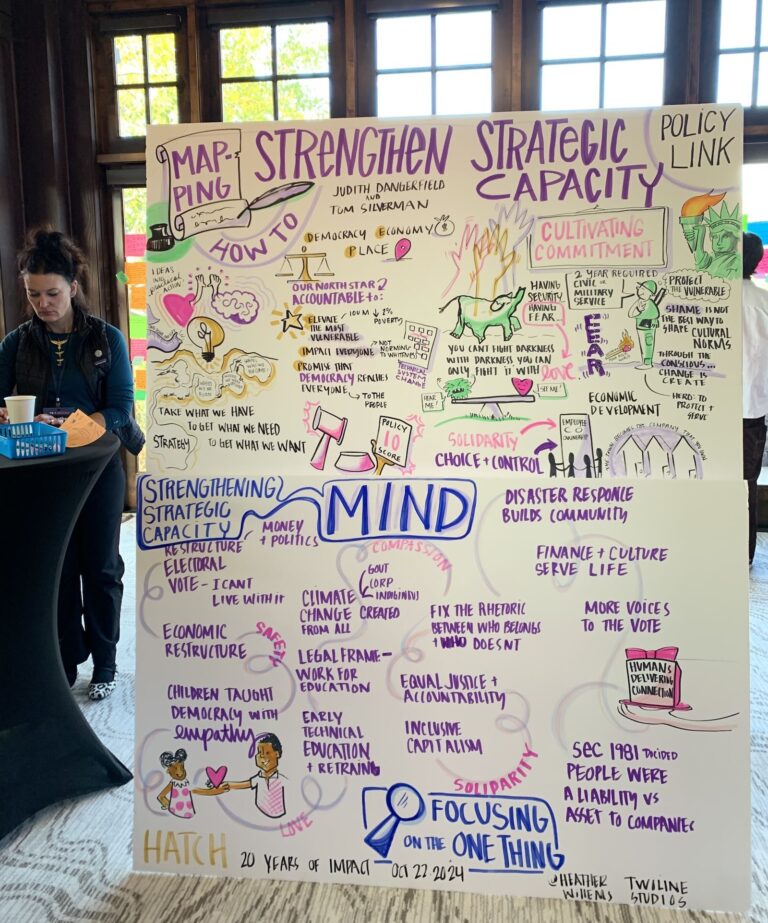 MAP-
PING
HOW TO
STRENGTHEN STRATEGIC
CAPACITY
POLICY
LINK
JUDITH DANGERFIELD
AND
TOM SILVERMAN
DEMOCRACY ECONOMY
PLACE
IDEAS
OUR NORTH STAR
ACCOUNTABLE to:
ELEVATE
THE MOST
VULNERABLE
100 M
POVERTY
IMPACT EVERYONE
NOT
NORMING
TO WHITENESS
PROMISE THAT
DEMOCRACY REACHES
EVERYONE
TO THE
PEOPLE
TECHNICAL
SYSTEM
CHANGE
TAKE WHAT WE HAVE
TO GET WHAT WE NEED
STRATEGY
TO GET WHAT WE WANT
POLICY
10
SCORE
CULTIVATING
COMMITMENT
HAVING
SECURITY
HAVING
FEAR
2 YEAR REQUIRED
CIVIL OR
MILITARY
SERVICE
PROTECT
THE VULNERABLE
SHAME IS NOT
THE BEST WAY to
SHAPE CULTURAL
NORMS
THROUGH THE
CONSCIOUS...
CHANGE IS
CREATE
HERD TO
PROTECT +
SERVE
FEAR
YOU CAN'T FIGHT DARKNESS
WITH DARKNESS YOU CAN
ONLY FIGHT IT WITH
love
HEAR
ME!
SEE ME!
SOLIDARITY
CHOICE + CONTROL
EMPLOYEE
CO
OWNERSHIP
ECONOMIC
DEVELOPMENT
STRENGTHENING
STRATEGIC
CAPACITY
MIND
MONEY
+ POLITICS
RESTRUCTURE
ELECTORAL
VOTE - I CANT
LIVE WITH IT
ECONOMIC
RESTRUCTURE
SAFETY
CHILDREN TAUGHT
DEMOCRACY WITH
empathy
LOVE
COMPASSION
GOVT
CORP
INDIGINOUS
CLIMATE
CHANGE CREATED
FROM ALL
LEGAL FRAME-
WORK FOR
EDUCATION
EARLY
TECHNICAL
EDUCATION
+ RETRAING
FIX THE RHETORIC
BETWEEN WHO BELONGS
+ WHO DOESNT
EQUAL JUSTICE +
ACCOUNTABILITY
INCLUSIVE
CAPITALISM
SOLIDARITY
DISASTER RESPONCE
BUILDS COMMUNITY
FINANCE + CULTURE
SERVE LIFE
MORE VOICES
TO THE VOTE
HUMANS
DELIVERING
CONNECTION
SEC 1981 DECIDED
PEOPLE WERE
A LIABILITY VS
ASSET TO COMPANIES
FOCUSING
ON THE ONE THING
HATCH 20 YEARS OF IMPACT OCT 22 2024
@HEATHER
WILLEMS
TWILINE
STUDIOS